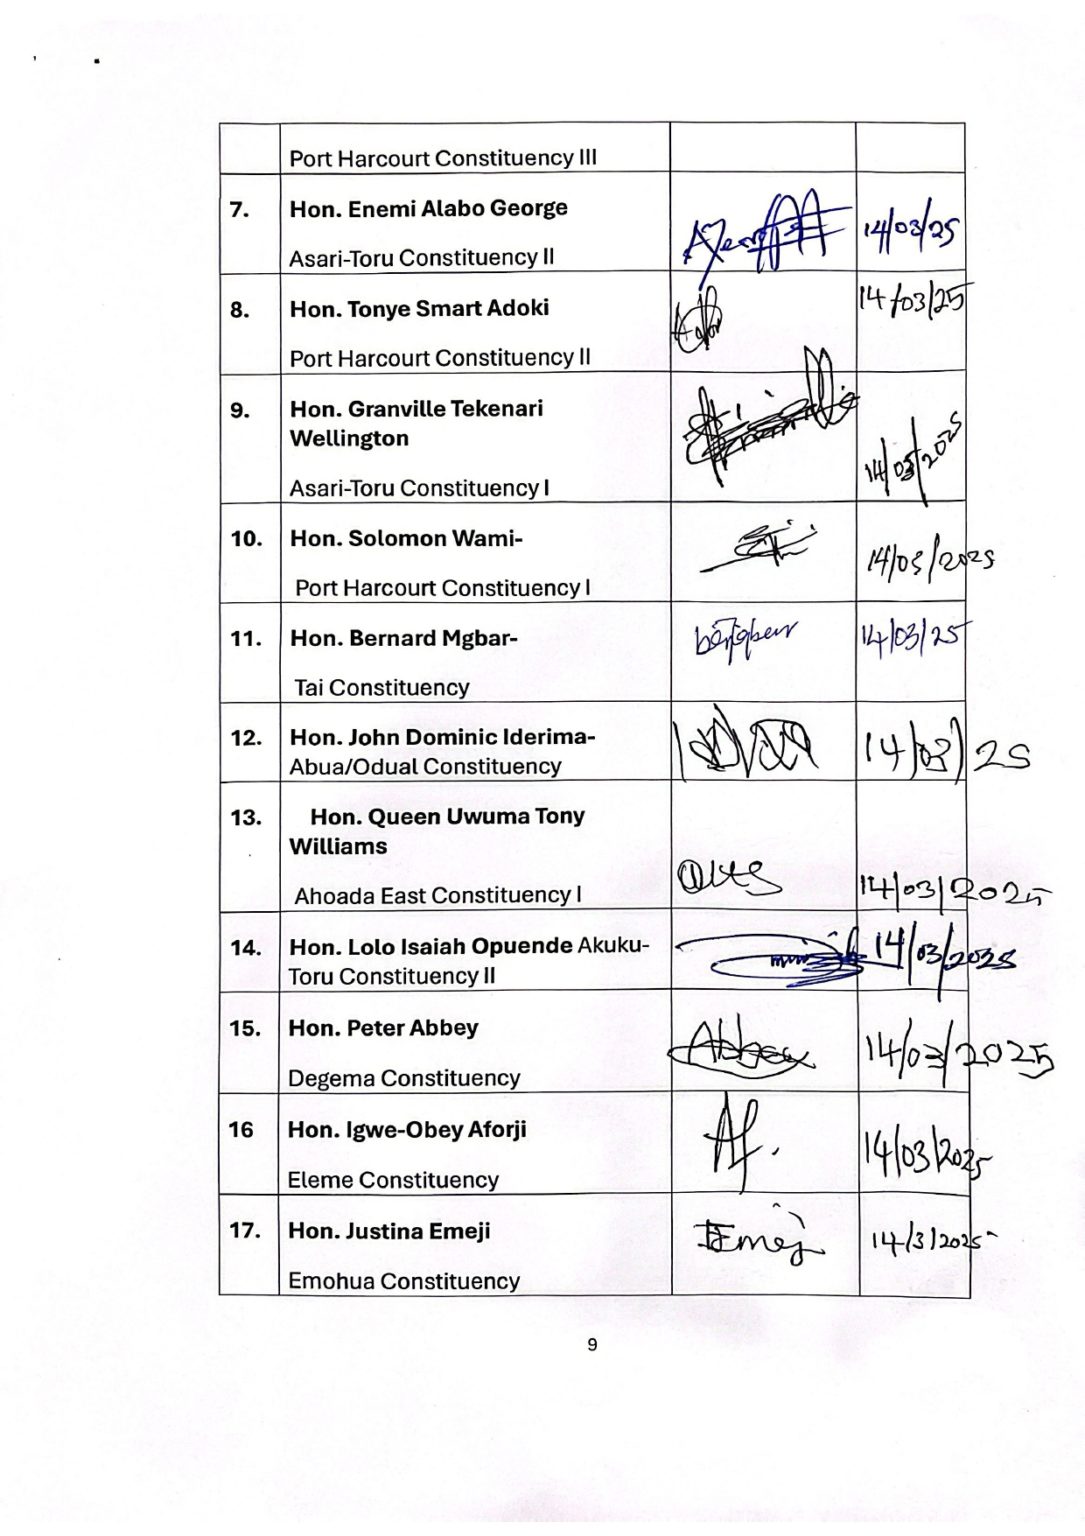 Port Harcourt Constituency III
7. Hon. Enemi Alabo George 14/03/25
Asari-Toru Constituency II
8. Hon. Tonye Smart Adoki 14/03/25
Port Harcourt Constituency II
9. Hon. Granville Tekenari
Wellington 14/03/2025
Asari-Toru Constituency I
10. Hon. Solomon Wami- 14/03/2025
Port Harcourt Constituency I
11. Hon. Bernard Mgbar- 14/03/25
Tai Constituency
12. Hon. John Dominic Iderima- 14/03/25
Abua/Odual Constituency
13. Hon. Queen Uwuma Tony
Williams
Ahoada East Constituency I 14/03/2025
14. Hon. Lolo Isaiah Opuende Akuku- 14/03/2025
Toru Constituency II
15. Hon. Peter Abbey Abbey 14/03/2025
Degema Constituency
16 Hon. Igwe-Obey Aforji Af. 14/03/2025
Eleme Constituency
17. Hon. Justina Emeji JEmeji 14/3/2025
Emohua Constituency
9